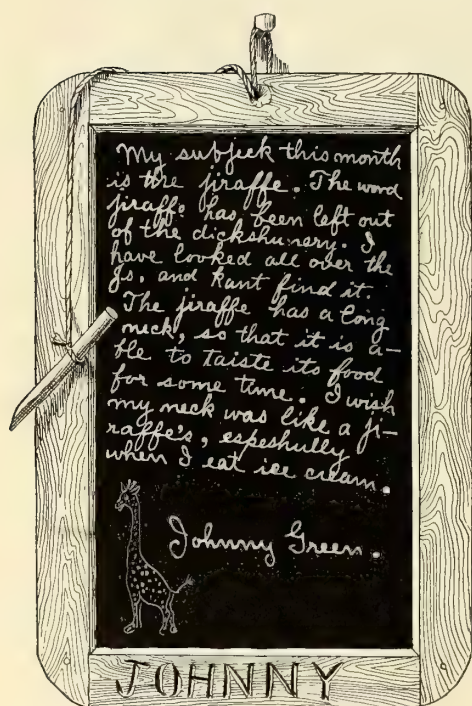 My subjeck this month
is the jiraffe. The word
jiraffe has been left out
of the dickshunery. I
have looked all over the
Js, and kant find it.
The jiraffe has a long
neck, so that it is a-
ble to taiste its food
for some time. I wish
my neck was like a ji-
raffe's, espeshully
when I eat ice cream.
Johnny Green.
JOHNNY